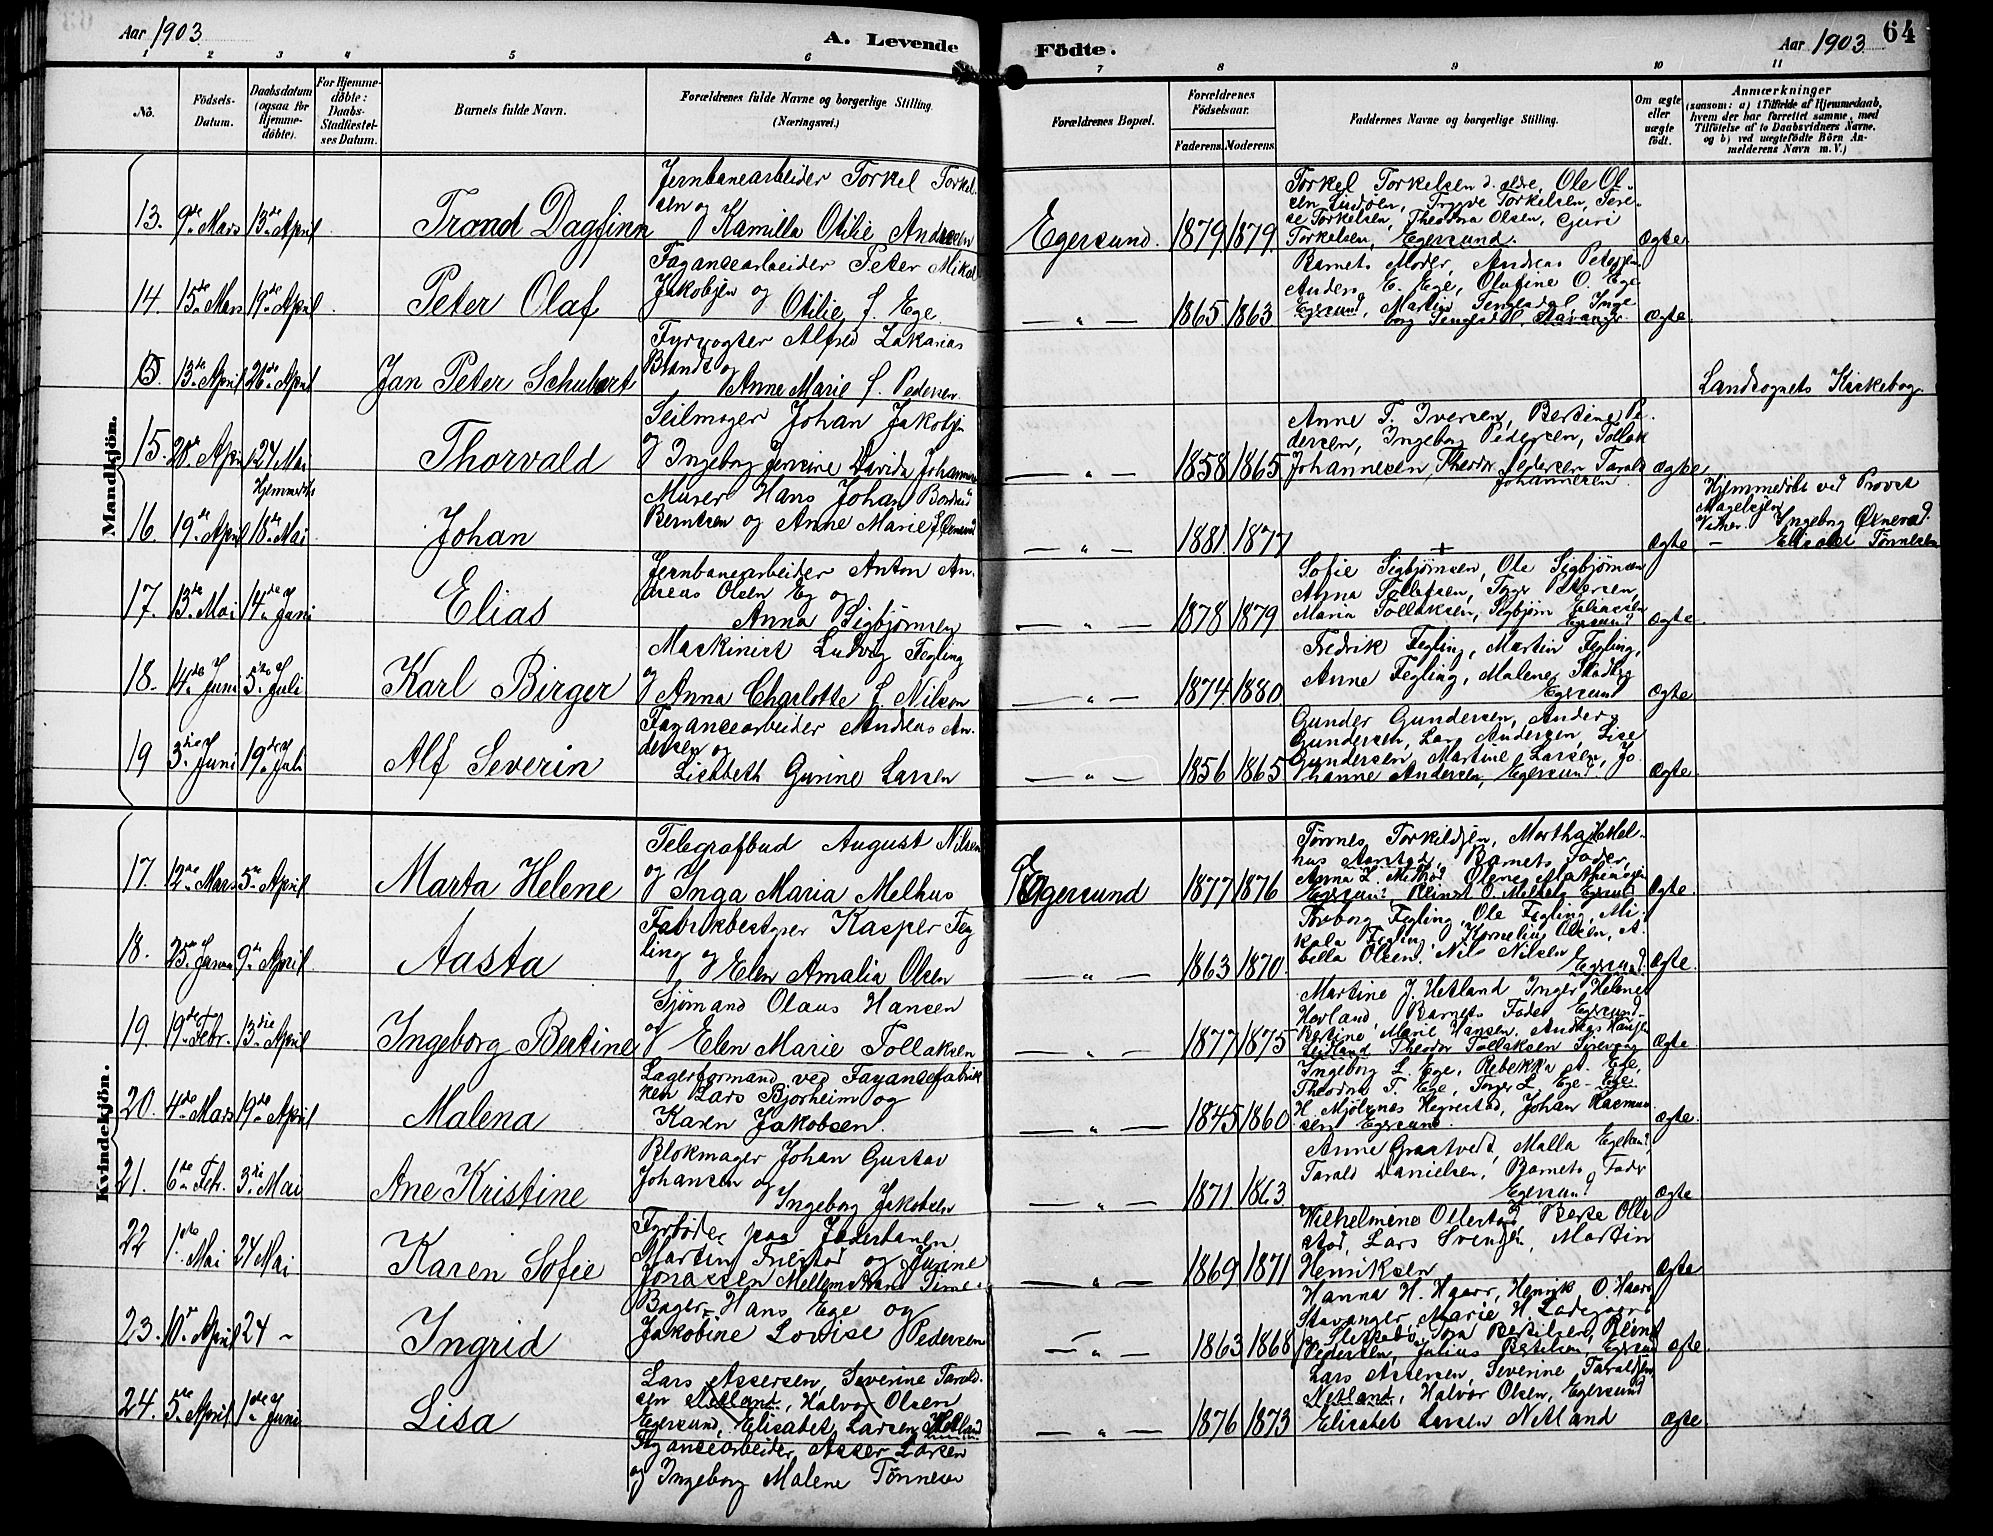 Aar 1903
A. Levende
Födte.
Aar 1903
64
1 2 3 4 5 6 7 8 9 10 11
No.
Fødsels-
Datum.
Daabsdatum
(ogsaa for
Hjemme-
døbte).
For Hjemme-
døbte:
Daabs-
Stadfæstel-
ses Datum.
Barnets fulde Navn.
Forældrenes fulde Navne og borgerlige Stilling.
(Næringsvei.)
Forældrenes Bopæl.
Forældrenes
Fødselsaar.
Faderens. Moderens.
Faddernes Navne og borgerlige Stilling.
Om ægte
eller
uægte
født.
Anmærkninger
(saasom: a) i Tilfælde af Hjemmedaab,
hvem der har forrettet samme, med
Tilføielse af to Daabsvidners Navne.
og b) ved uægtefødte Börn An-
melderens Navn m. V.)
Mandkjön.
13. 9de Mars 13de April Trond Dagfinn
Jernbanearbeider Torkel Torkel-
sen og
Kamilla Otilie Andersen
Egersund. 1879 1879
Torkel Torkelsen d. ældre, Ole Ol-
sen Tryve Torkelsen, Tere-
se Torkelsen, Theodora Olsen, Guri
Torkelsen, Egersund.
Ægte
14. 15de Mars 19de April Peter Olaf
Fayancearbeider Peter Mikal
Jakobsen og Otilie f. Ege
— „ — 1865 1863
Barnets Moder, Andreas Petersen
Anders E. Ege, Olufine O. Ege
Egersund, Martin Tengesdal Inge-
borg Tengesdal, Stavanger
Ægte.
13de April 26de April Jan Peter Schubert
Fyrvogter Alfred Zakarias
Brandt og
Anne Marie f. Pedersen
Landsognets Kirkebog
15. 20de April 24 Mai Thorvald
Seilmager Johan Jakobsen
og Ingeborg Davida Johannesen
— „ — 1858 1865
Anne T. Iversen, Bertine Pe-
dersen, Ingeborg Pedersen, Tollak
Johannesen, Theodor Pedersen Tarald
Johannesen
Ægte
16. 19de April 18de Mai Johan
Hjemmedøbt
Murer Hans Johan
Berntsen og Anne Marie f.
— „ — 1881 1877
Ægte
Hjemmedøbt ved Provst
Magelssen
Vidner. Ingeborg
— Elisabet Tønnesen
17. 13de Mai 14de Juni Elias
Jernbanearbeider Anton An-
dreas Olsen Eg og
Anna Sigbjørnsen
— „ — 1878 1879
Sofie Sigbjørnsen, Ole Sigbjørnsen
Anna Tollefsen, Petersen,
Maria Tollaksen, Sigbjørn Eliassen
Egersund
Ægte
18. 4de Juni 5te Juli Karl Birger
Maskinist Ludvig Fegling
og Anna Charlotte f. Nilson
— „ — 1874 1880
Fredrik Fegling, Martin Fegling,
Anne Fegling, Malene Skadberg
Egersund
Ægte
19 3die Juni 19de Juli Alf Severin
Fayancearbeider Andreas An-
dersen og
Lisebeth Gurine Larsen
— „ — 1856 1865
Gunder Gundersen, Anders
Gundersen, Lars Andersen Lise
Gundersen, Martine Larsen, Jo-
hanne Andersen, Egersund
Ægte
Kvindekjön.
17. 12te Mars 5te April Marta Helene
Telegrafbud August Nilsen
og Inga Maria Melhus
Egersund 1877 1876
Tønnes Torkildsen, Martha Mel-
hus Aarstad, Barnets Fader,
Anna L. Olene Mathiassen
Egersund O. Melhus Egersund
Ægte.
18. 25de Januar 9de April Aasta
Fabrikbestyrer Kasper Feg
ling og
Elen Amalia Olsen
— „ — 1863 1870
Torborg Fegling, Ole Fegling, Mi-
kala Fegling Kornelius Olsen, A
bella Olsen, Nils Nilsen
Egersund.
Ægte.
19. 19de Febr. 13die April Ingeborg Bertine
Sjømand Olaus Hansen
og Elen Marie Tollaksen
— „ — 1877 1875
Martine J. Hetland Inger Helene
Hovland, Barnets Fader Egersund
Bertine Marie Hansen, Andreas Hansen
Theodor Tollaksen Sirevaag
Ægte.
20. 4de Mars 19de April Malena
Lagerformand ved Fayancefabrik
ken Lars Bjorheim og
Karen Jakobsen.
— „ — 1845 1860
Ingeborg L. Ege, Rebekka A. Ege,
Theodor T. Ege, Inger L. Ege - Ege
H. Mjølsnes Hegrestad, Johan Rasmus
sen Egersund
Ægte.
21. 6te Febr. 3die Mai Ane Kristine
Blokmager Johan Gustav
Johansen og
Ingeborg Jakobsen
— „ — 1871 1863
Anne Graatvedt, Malla Egeland,
Tarald Danielsen, Barnets Fader
Egersund
Ægte
22 1ste Mai 24 Mai Karen Sofie
Fyrbøder paa Jæderbanen
Martin og Jurine
Jonassen
— „ — 1869 1871
Wilhelmine Ollestad, Berte Olle-
stad, Lars Svendsen, Martin
Henriksen
Ægte
23. 10de April 24 - Ingrid
Bager Hans Ege og
Jakobine Lovise Pedersen
— „ — 1863 1868
Hanna H. Haarr, Henrik O. Haarr
Stavanger, Marie H. Ladegaard
Tora Bertilsen, Bernt
Pedersen, Julius Bertilsen, Egersund
Ægte
24. 5te April 1ste Juni Lisa
Lars Assersen, Severine Tarald-
sen Netland, Halvor Olsen
Egersund, Elisabet Larsen Netland
Fayancearbeider Asser Larsen
og Ingeborg Malene Tønnesen
— „ — 1876 1873
Lars Assersen, Severine Taraldsen
Netland, Halvor Olsen, Egersund
Elisabet Larsen Netland
Ægte